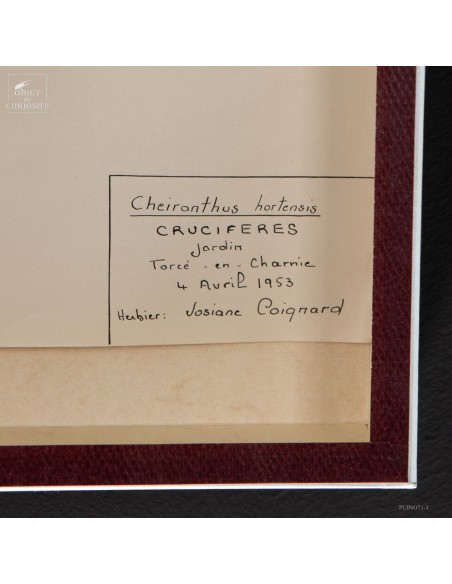 OBJET
DE
CURIOSITÉ
Cheiranthus hortensis
CRUCIFERES
Jardin
Torcé - en - Charnie
4 Avril 1953
Herbier: Josiane Coignard
PUIN071-1